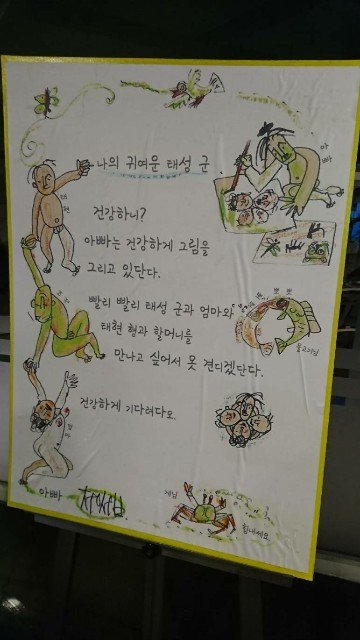 나의 귀여운 태성 군
아빠
태현
건강하니?
아빠는 건강하게 그림을
그리고 있단다.
빨리 빨리 태성 군과 엄마와
뽀뽀
태현 형과 할머니를
물고기님
만나고 싶어서 못 견디겠단다.
건강하게 기다려다오.
엄마
아빠
게님
힘내세요.